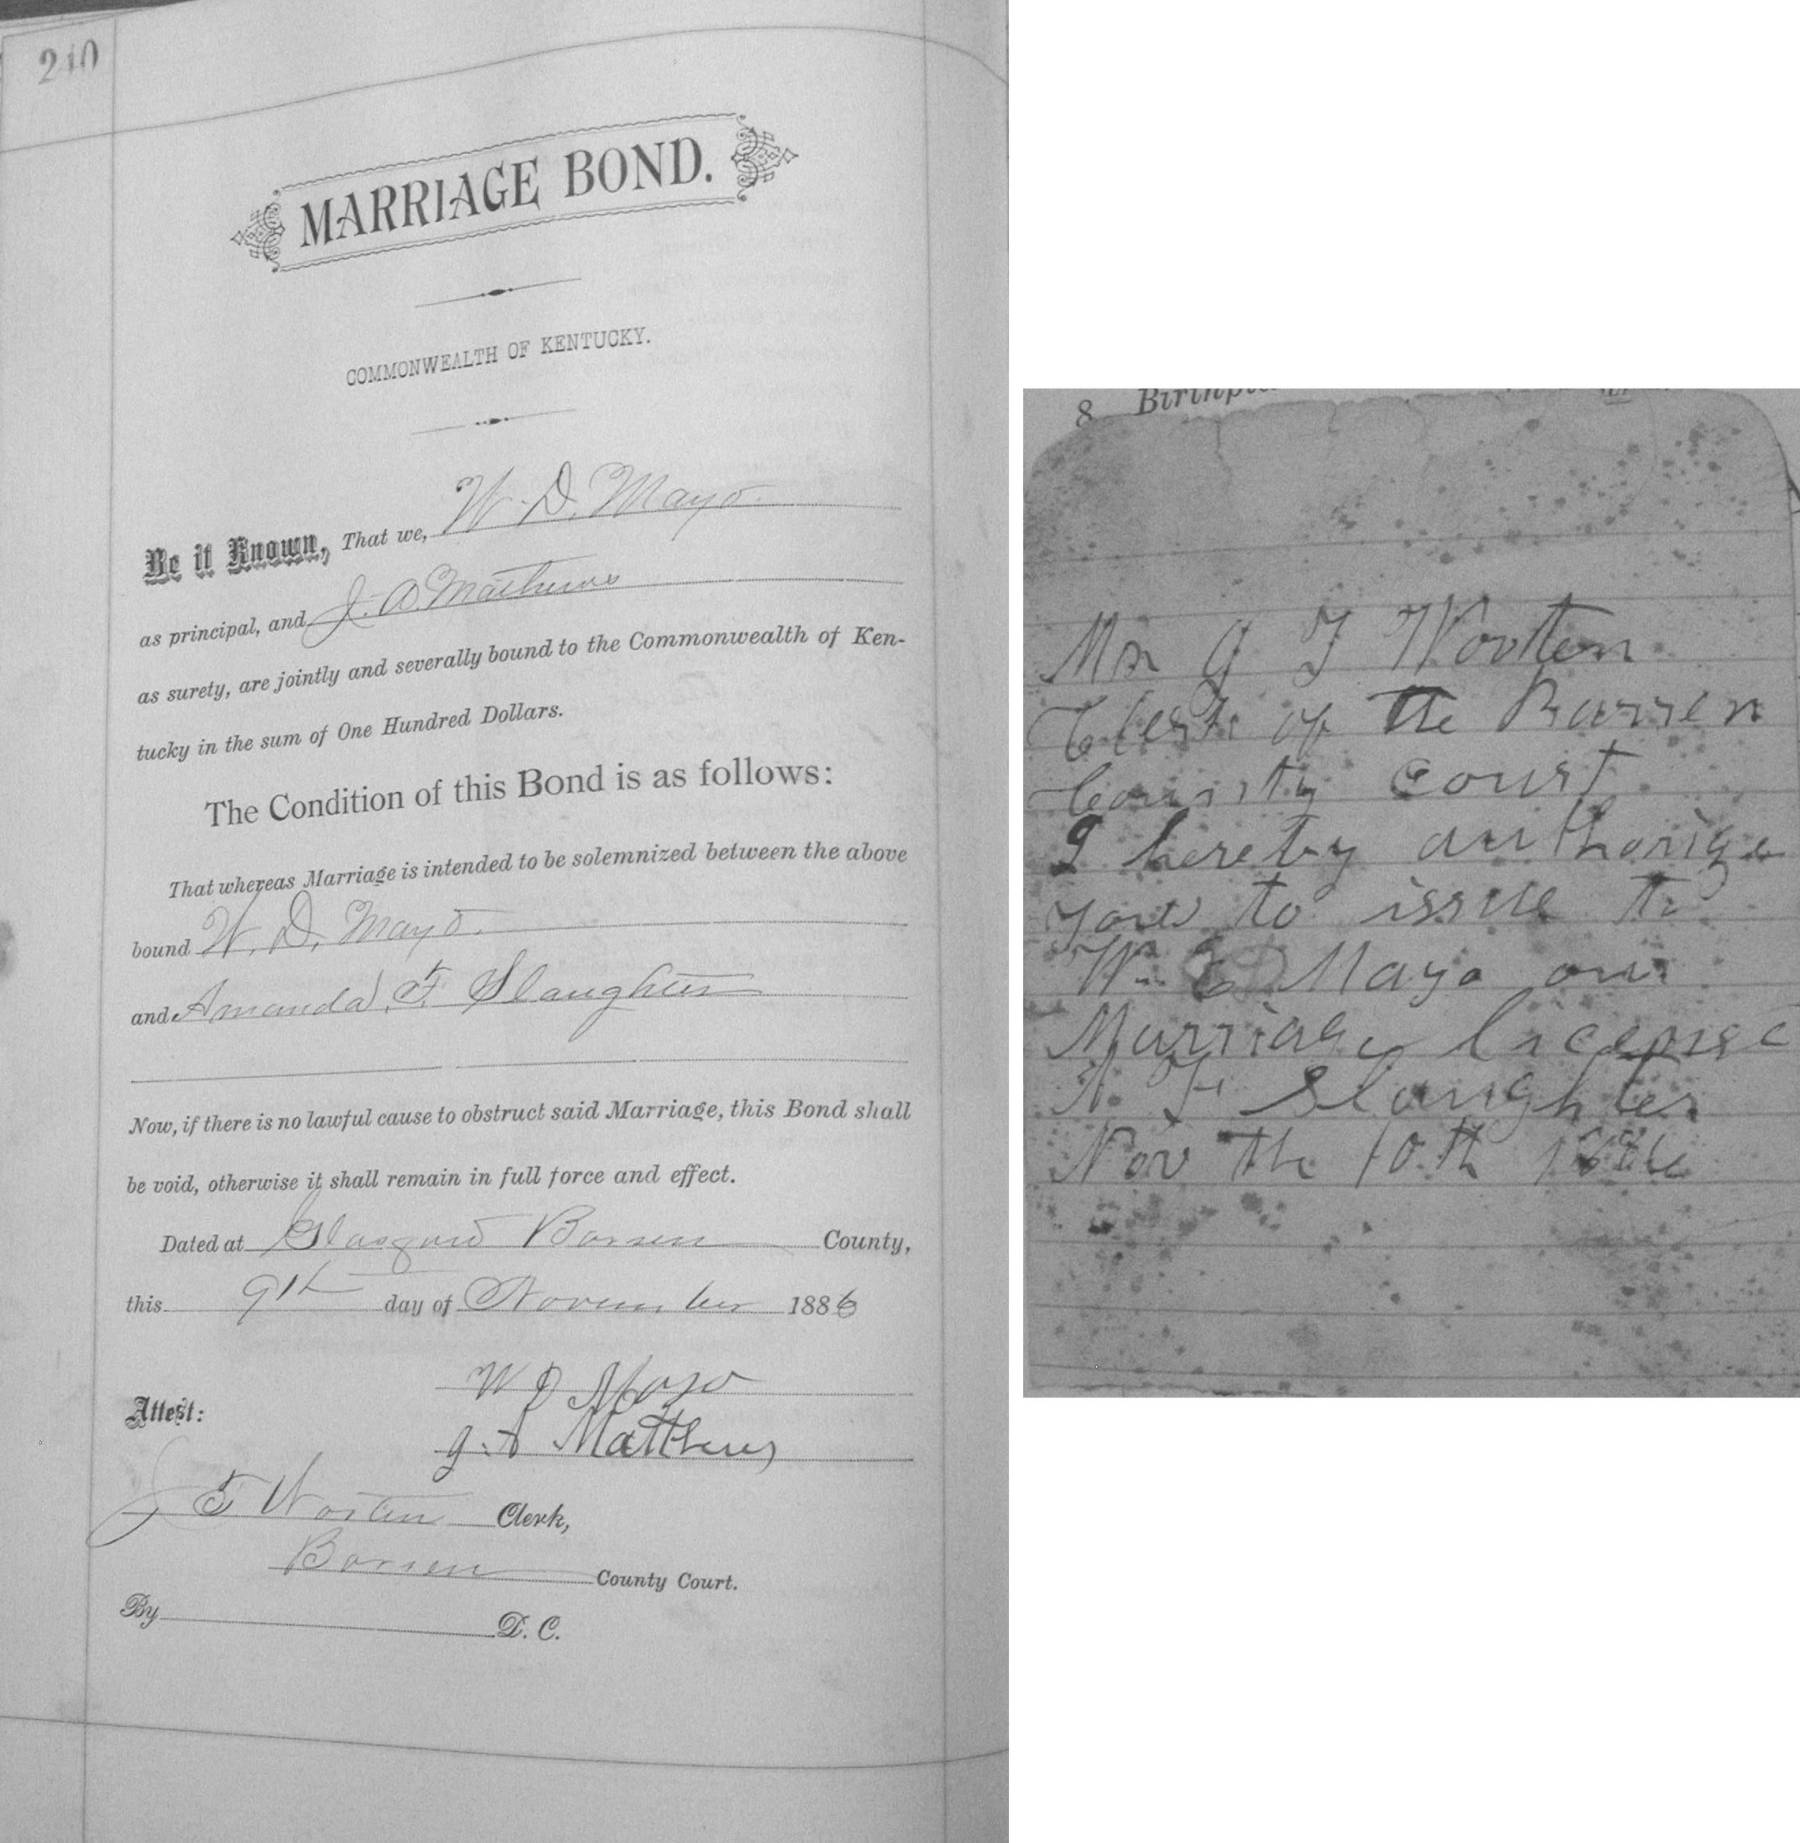 210
MARRIAGE BOND.
COMMONWEALTH OF KENTUCKY.
Be it Known, That we, W. D. Mayo
as principal, and J. A. Mathews
as surety, are jointly and severally bound to the Commonwealth of Ken-
tucky in the sum of One Hundred Dollars.
The Condition of this Bond is as follows:
That whereas Marriage is intended to be solemnized between the above
bound W. D. Mayo.
and Amanda F. Slaughter
Now, if there is no lawful cause to obstruct said Marriage, this Bond shall
be void, otherwise it shall remain in full force and effect.
Dated at Glasgow Barren County,
this 9th day of November 1886
W D Mayo
Attest:
J. A Matthews
J T Wooten Clerk,
Barren County Court.
By D. C.
8
Mr J T Wooten
Clerk of the Barren
County Court
I hereby authorize
you to issue to
W D Mayo our
Marriage License
A. F Slaughter
Nov the 10th 1886